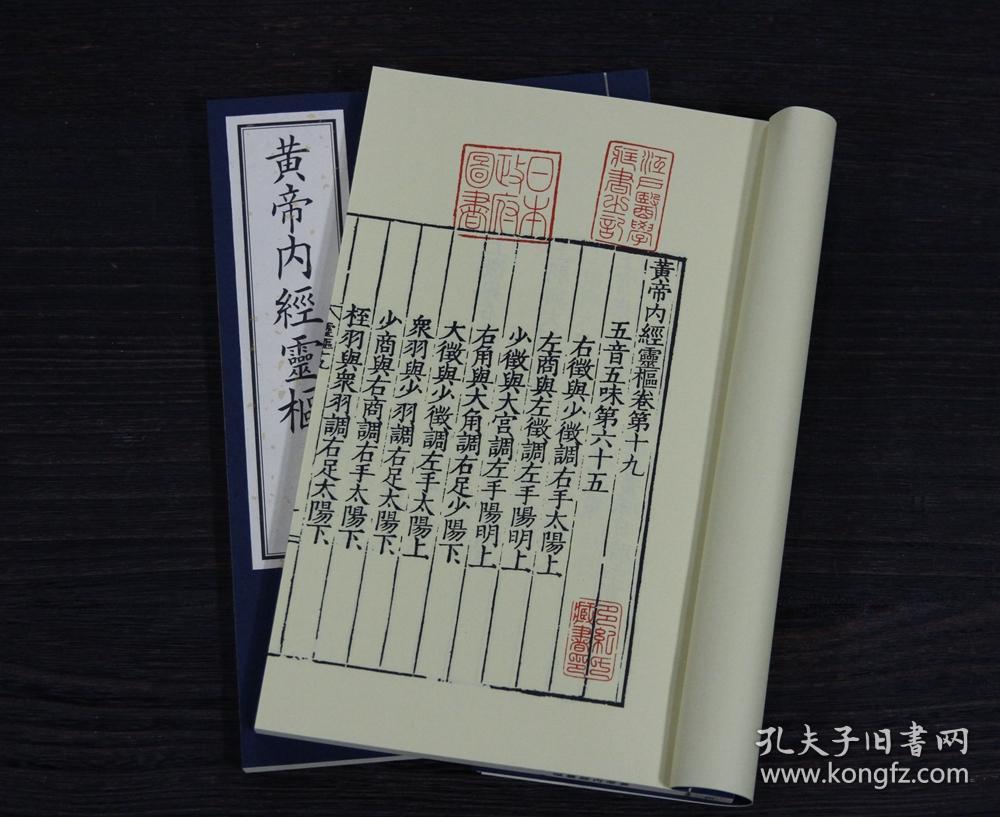 黄帝内經靈樞
日本
政府
圖書
江戸醫學
藏書之記
黃帝内經靈樞卷第十九
五音五味第六十五
右徵與少徵調右手太陽上
左商與左徵調左手陽明上
少徵與大宫調左手陽明上
右角與大角調右足少陽下
大徵與少徵調左手太陽上
衆羽與少羽調右足太陽下
少商與右商調右手太陽下
桎羽與衆羽調右足太陽下
靈樞十九
藏書
孔夫子旧书网
www.kongfz.com